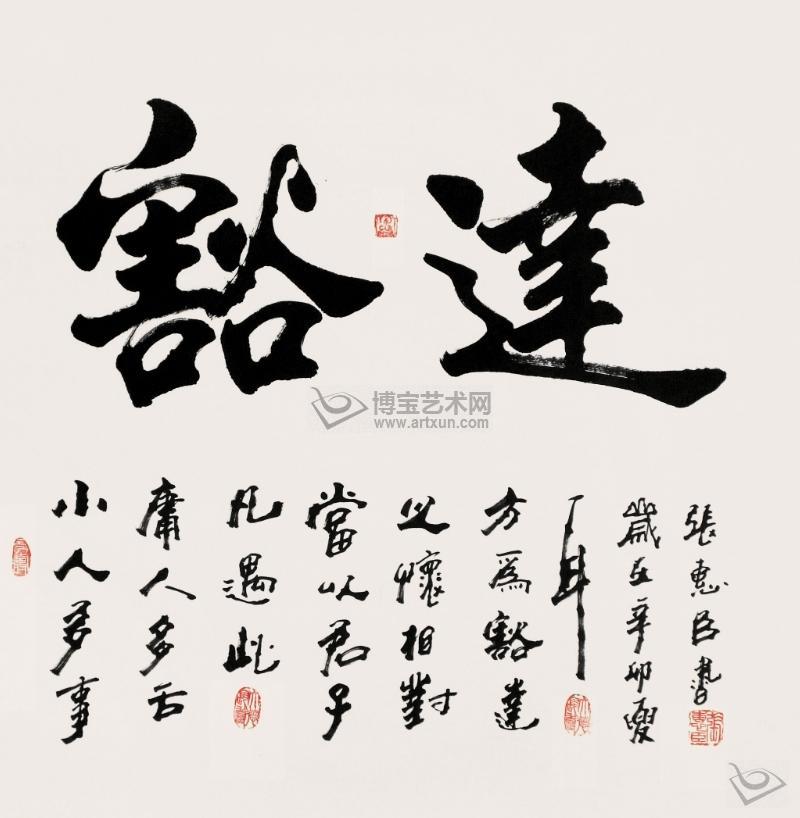 豁達
博宝艺术网
www.artxun.com
小人多事
庸人多舌
凡遇此
當以君子
之懷相對
方爲豁達
耳
歲在辛卯夏
張惠臣